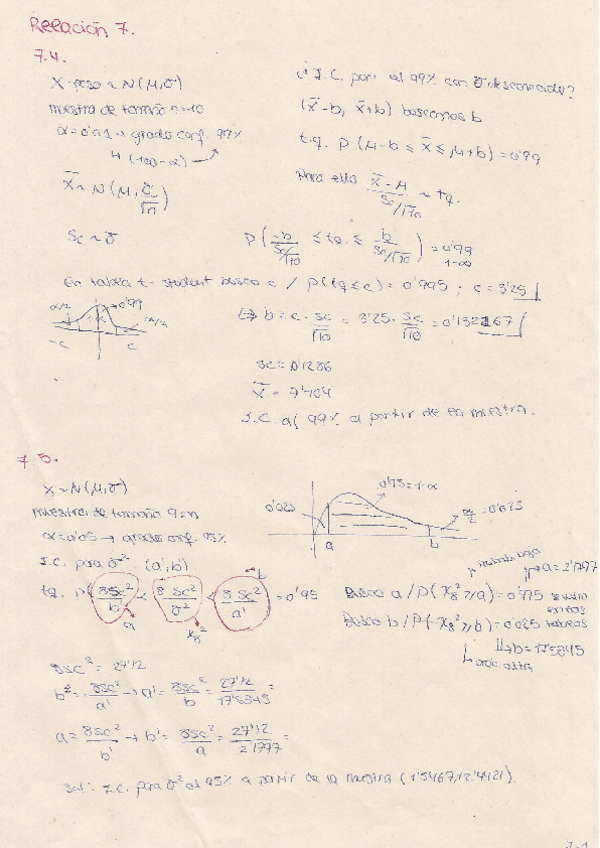 Relación 7.
7.4.
X=peso ~ N(μ,σ)
muestra de tamaño n=10
α=0'01 → grado conf. 99%
(100-α)
X̄ ~ N(μ, σ/√n)
Sc ~ σ
¿I.C. para al 99% con σ desconocido?
(x̄-b, x̄+b) buscamos b
t.q. P(μ-b ≤ x̄ ≤ μ+b) = 0'99
Para ello (x̄-μ)/(Sc/√10) ~ t9.
P(-b/(Sc/√10) ≤ t9 ≤ b/(Sc/√10)) = 0'99
1-α
En tabla t-student busco c / P(t9≤c) = 0'995 ; c = 3'25
α/2 0'99 α/2
-c c
b = c · Sc/√10 = 3'25 · Sc/√10 = 0'132167
Sc = 0'1286
x̄ =
I.C. al 99% a partir de la muestra.
7.5.
X ~ N(μ,σ)
muestra de tamaño 9=n
α=0'05 → grado conf. 95%
I.C. para σ² (a',b')
0'025 0'95=1-α α/2=0'025
a b
t.q. P(8Sc²/b' < 8Sc²/σ² < 8Sc²/a') = 0'95
a χ8² b
Busco a / P(χ8² ≥ a) = 0'975
a=2'1797
Busco b / P(χ8² ≥ b) = 0'025
b=17'5345
8Sc² = 27'12
b = 8Sc²/a' → a' = 8Sc²/b = 27'12/17'5345 =
a = 8Sc²/b' → b' = 8Sc²/a = 27'12/2'1797 =
Sol: I.C. para σ² al 95% a partir de la muestra (1'5467, 12'4421).